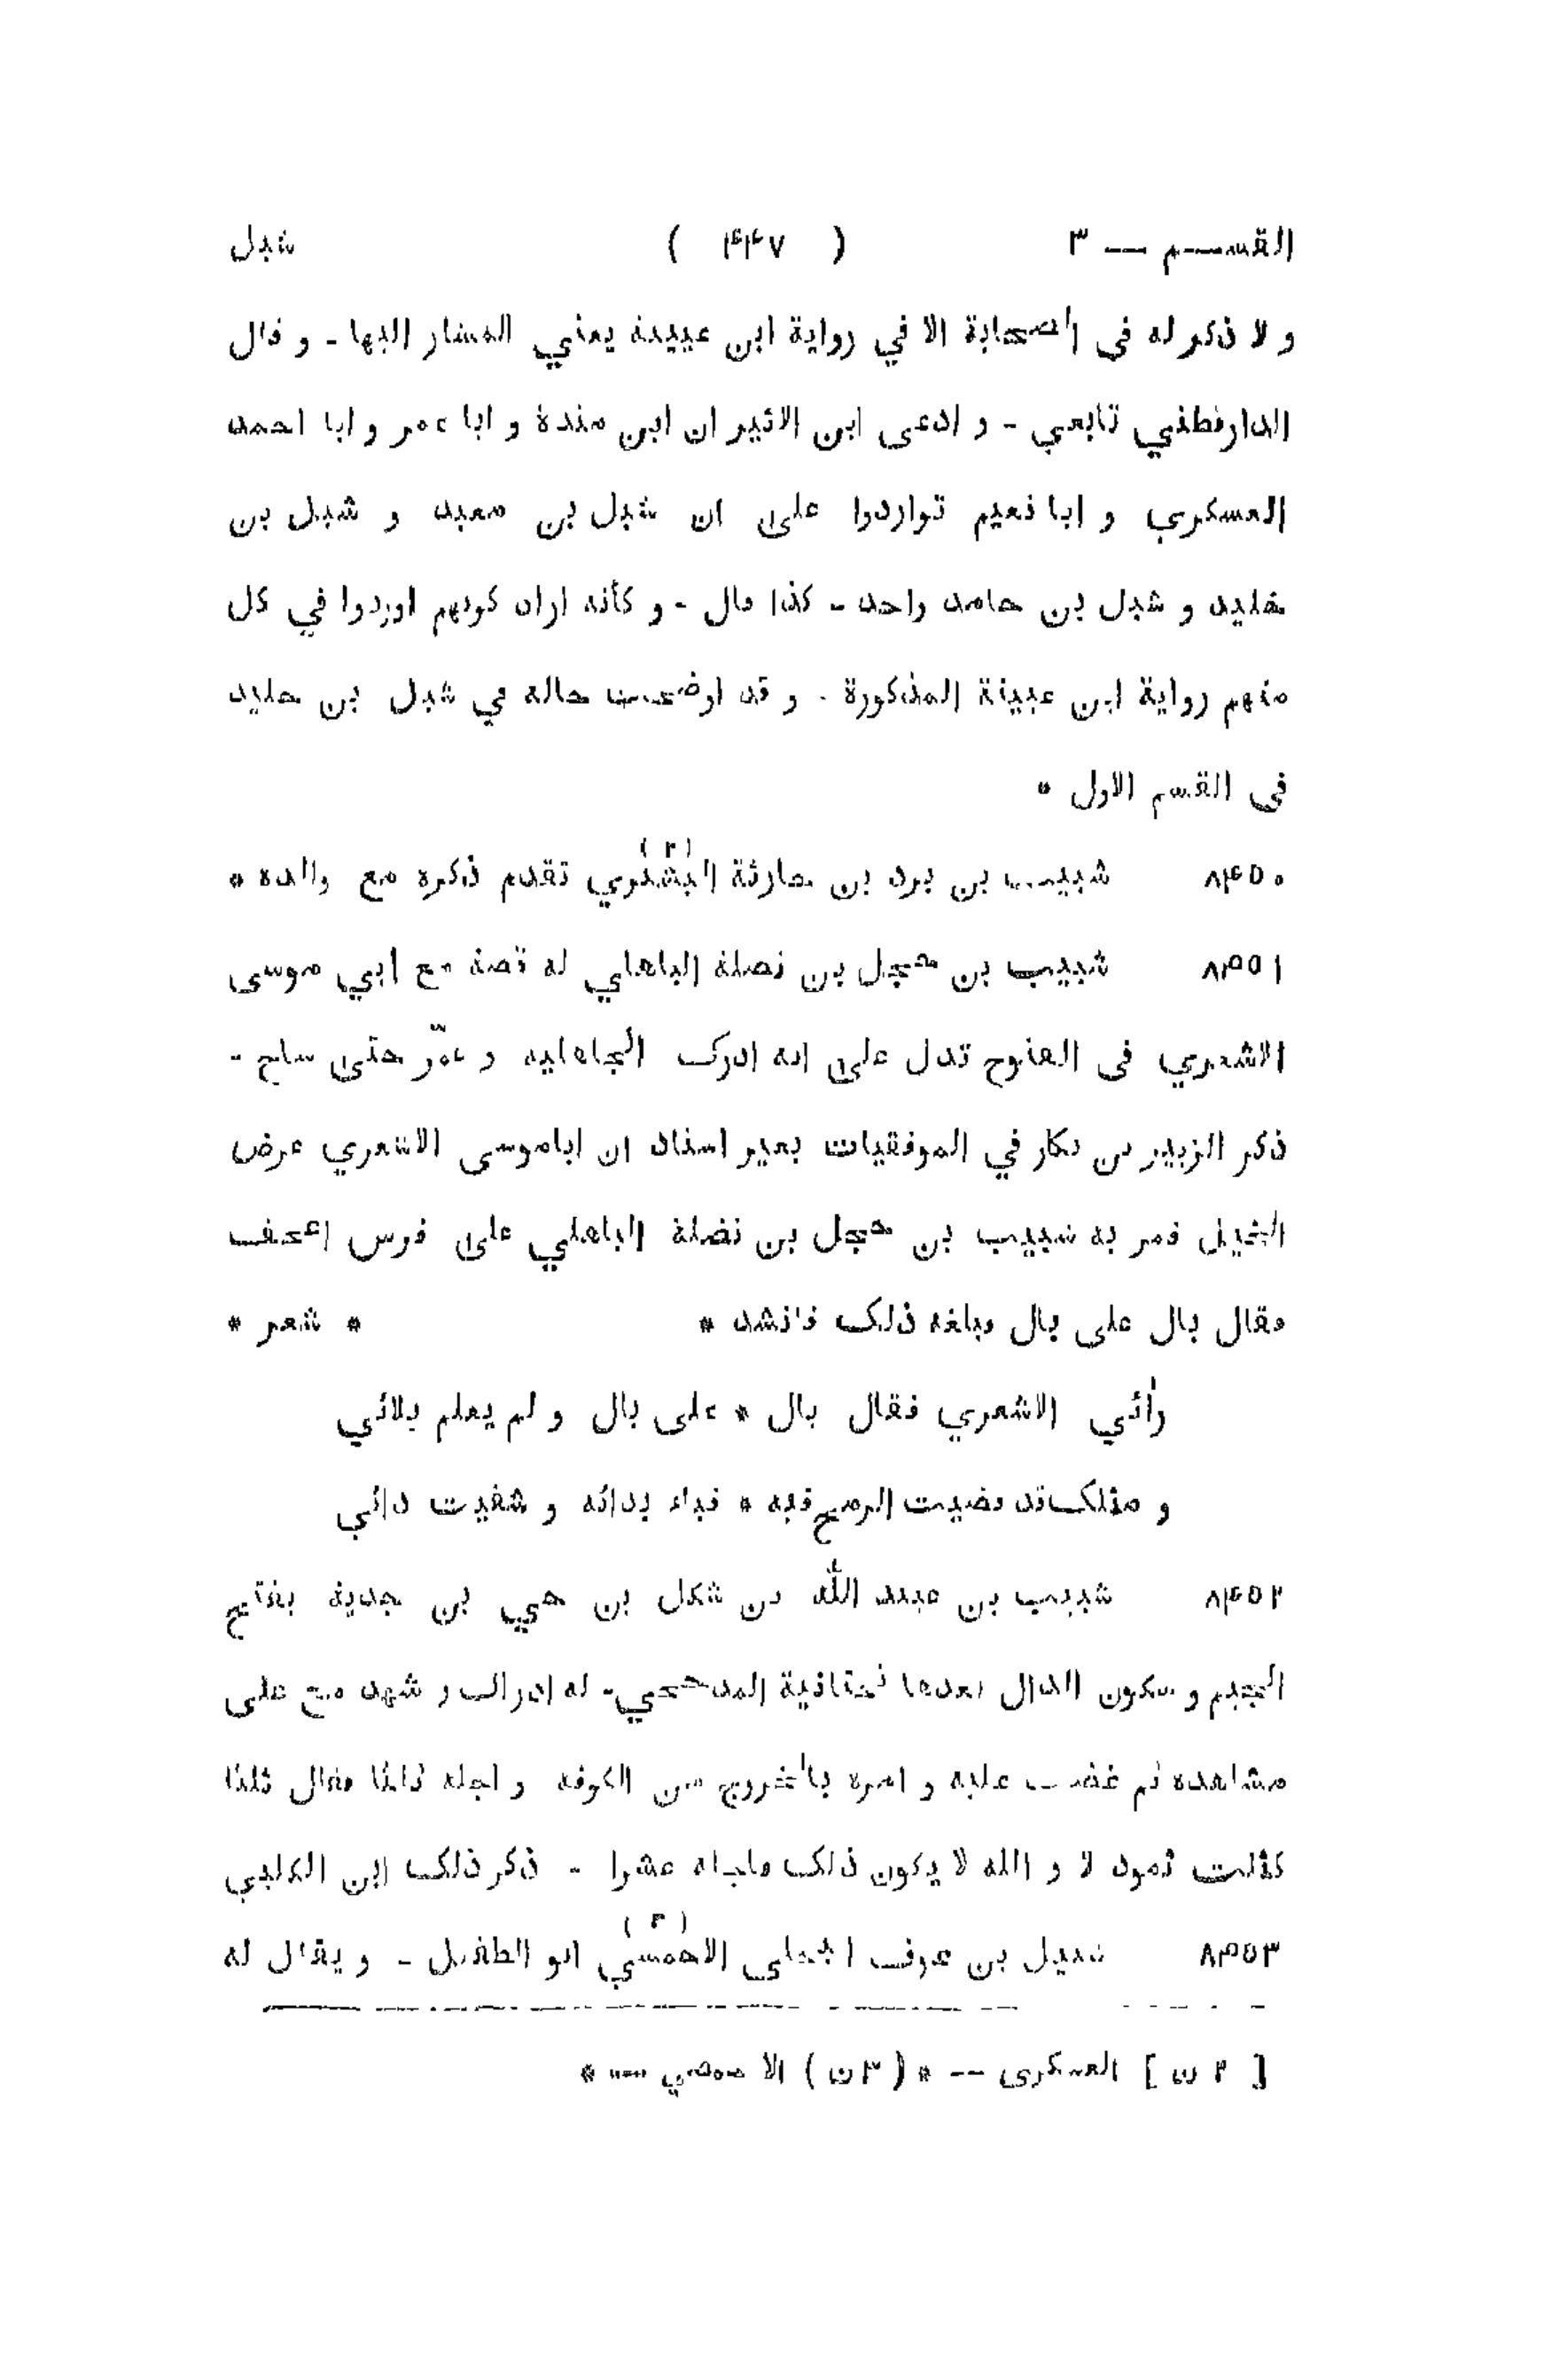 القسم — ٣ ( ٤٤٧ ) شبل
و لا ذكر له في الصحابة الا في رواية ابن عيينة يعني المشار اليها - و قال
الدارقطني تابعي - و ادعى ابن الاثير ان ابن مندة و ابا عمر و ابا احمد
العسكري و ابا نعيم تواردوا على ان شبل بن معبد و شبل بن
خليد و شبل بن حامد واحد - كذا قال - و كأنه اراد كونهم اوردوا في كل
منهم رواية ابن عيينة المذكورة - و قد اوضحت حاله في شبل بن خليد
في القسم الاول *
٨٤٥٠ شبيب بن برد بن حارثة اليشكري (٢) تقدم ذكره مع والده *
٨٤٥١ شبيب بن حجل بن نضلة الباهلي له قصة مع ابي موسى
الاشعري في الفتوح تدل على انه ادرك الجاهلية و عمّر حتى سلح -
ذكر الزبير بن بكار في الموفقيات بغير اسناد ان اباموسى الاشعري عرض
الخيل فمر به شبيب بن حجل بن نضلة الباهلي على فرس اعجف
فقال بال على بال فبلغه ذلك فانشد * * شعر *
رأني الاشعري فقال بال * على بال و لم يعلم بلائي
و مثلك قد قضيت الرمح فيه * فباء بدائه و شفيت دائي
٨٤٥٢ شبيب بن عبد الله بن شكل بن حي بن جدية بفتح
الجيم و سكون الدال بعدها تحتانية المذحجي - له ادراك و شهد مع على
مشاهده ثم غضب عليه و امره بالخروج من الكوفة و اجله ثلثا فقال ثلثا
كثلث ثمود لا و الله لا يكون ذلك فاجله عشرا - ذكر ذلك ابن الكلبي
٨٤٥٣ شبيل بن عوف البجلى الاحمسي (٣) ابو الطفيل - و يقال له
[ ٢ ن ] العسكرى — * ( ٣ ن ) الا حمصي — *